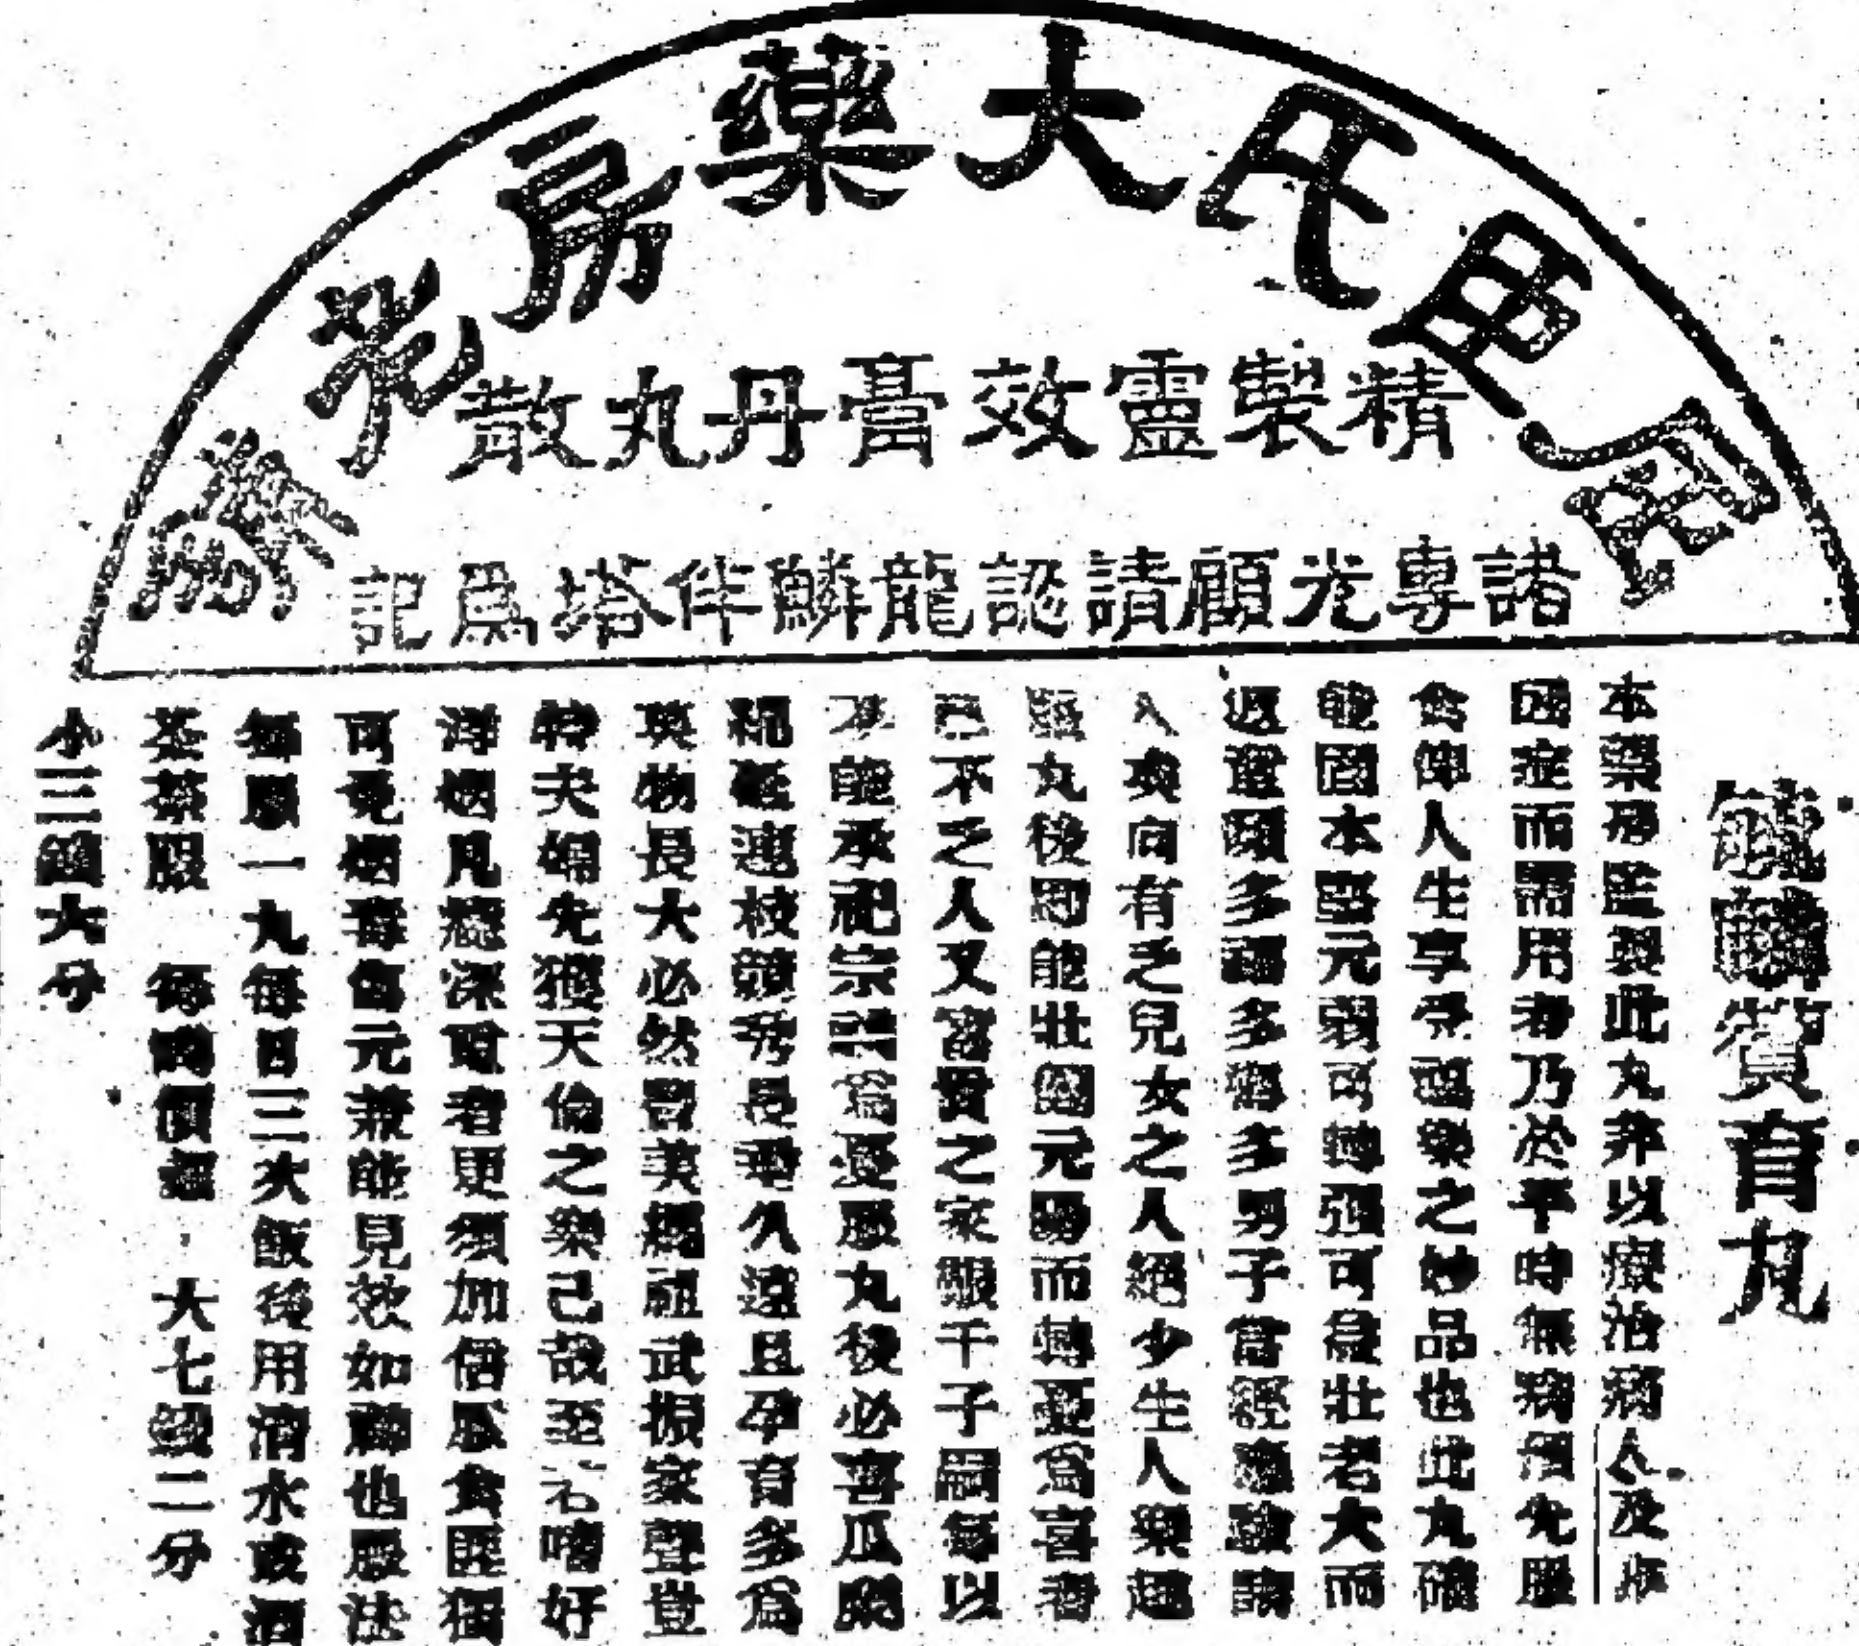 屈臣氏大藥房老
精製靈效膏丹丸散
諸尊光顧請認龍麟伴塔爲記
龍麟贊育丸
本藥房監製此丸非以療治病人及
因症而需用者乃於平時無病預先服
食俾人生享受福樂之妙品也此丸確
能固本培元弱可轉强可為壯老大而
返童多福多壽多男子當經應驗諸
人與向有乏兒女之人絕少生人樂趣
服丸後即能壯健元陽而轉憂爲喜者
已不乏人又富貴之家艱于子嗣每以
不能承祀宗祧爲憂服丸後必喜瓜瓞
綿連枝競秀久遠且孕育多爲
英物長大必然美繩祖武振家聲豈
特夫婦先獲天倫之樂已哉至若嗜好
洋烟凡癮深重者更須加倍服食匪獨
可免烟毒傷元兼能見效如神也服法
每服一丸每日三次飯後用清水或酒
茶服 每樽價銀 大七錢二分
小三錢六分